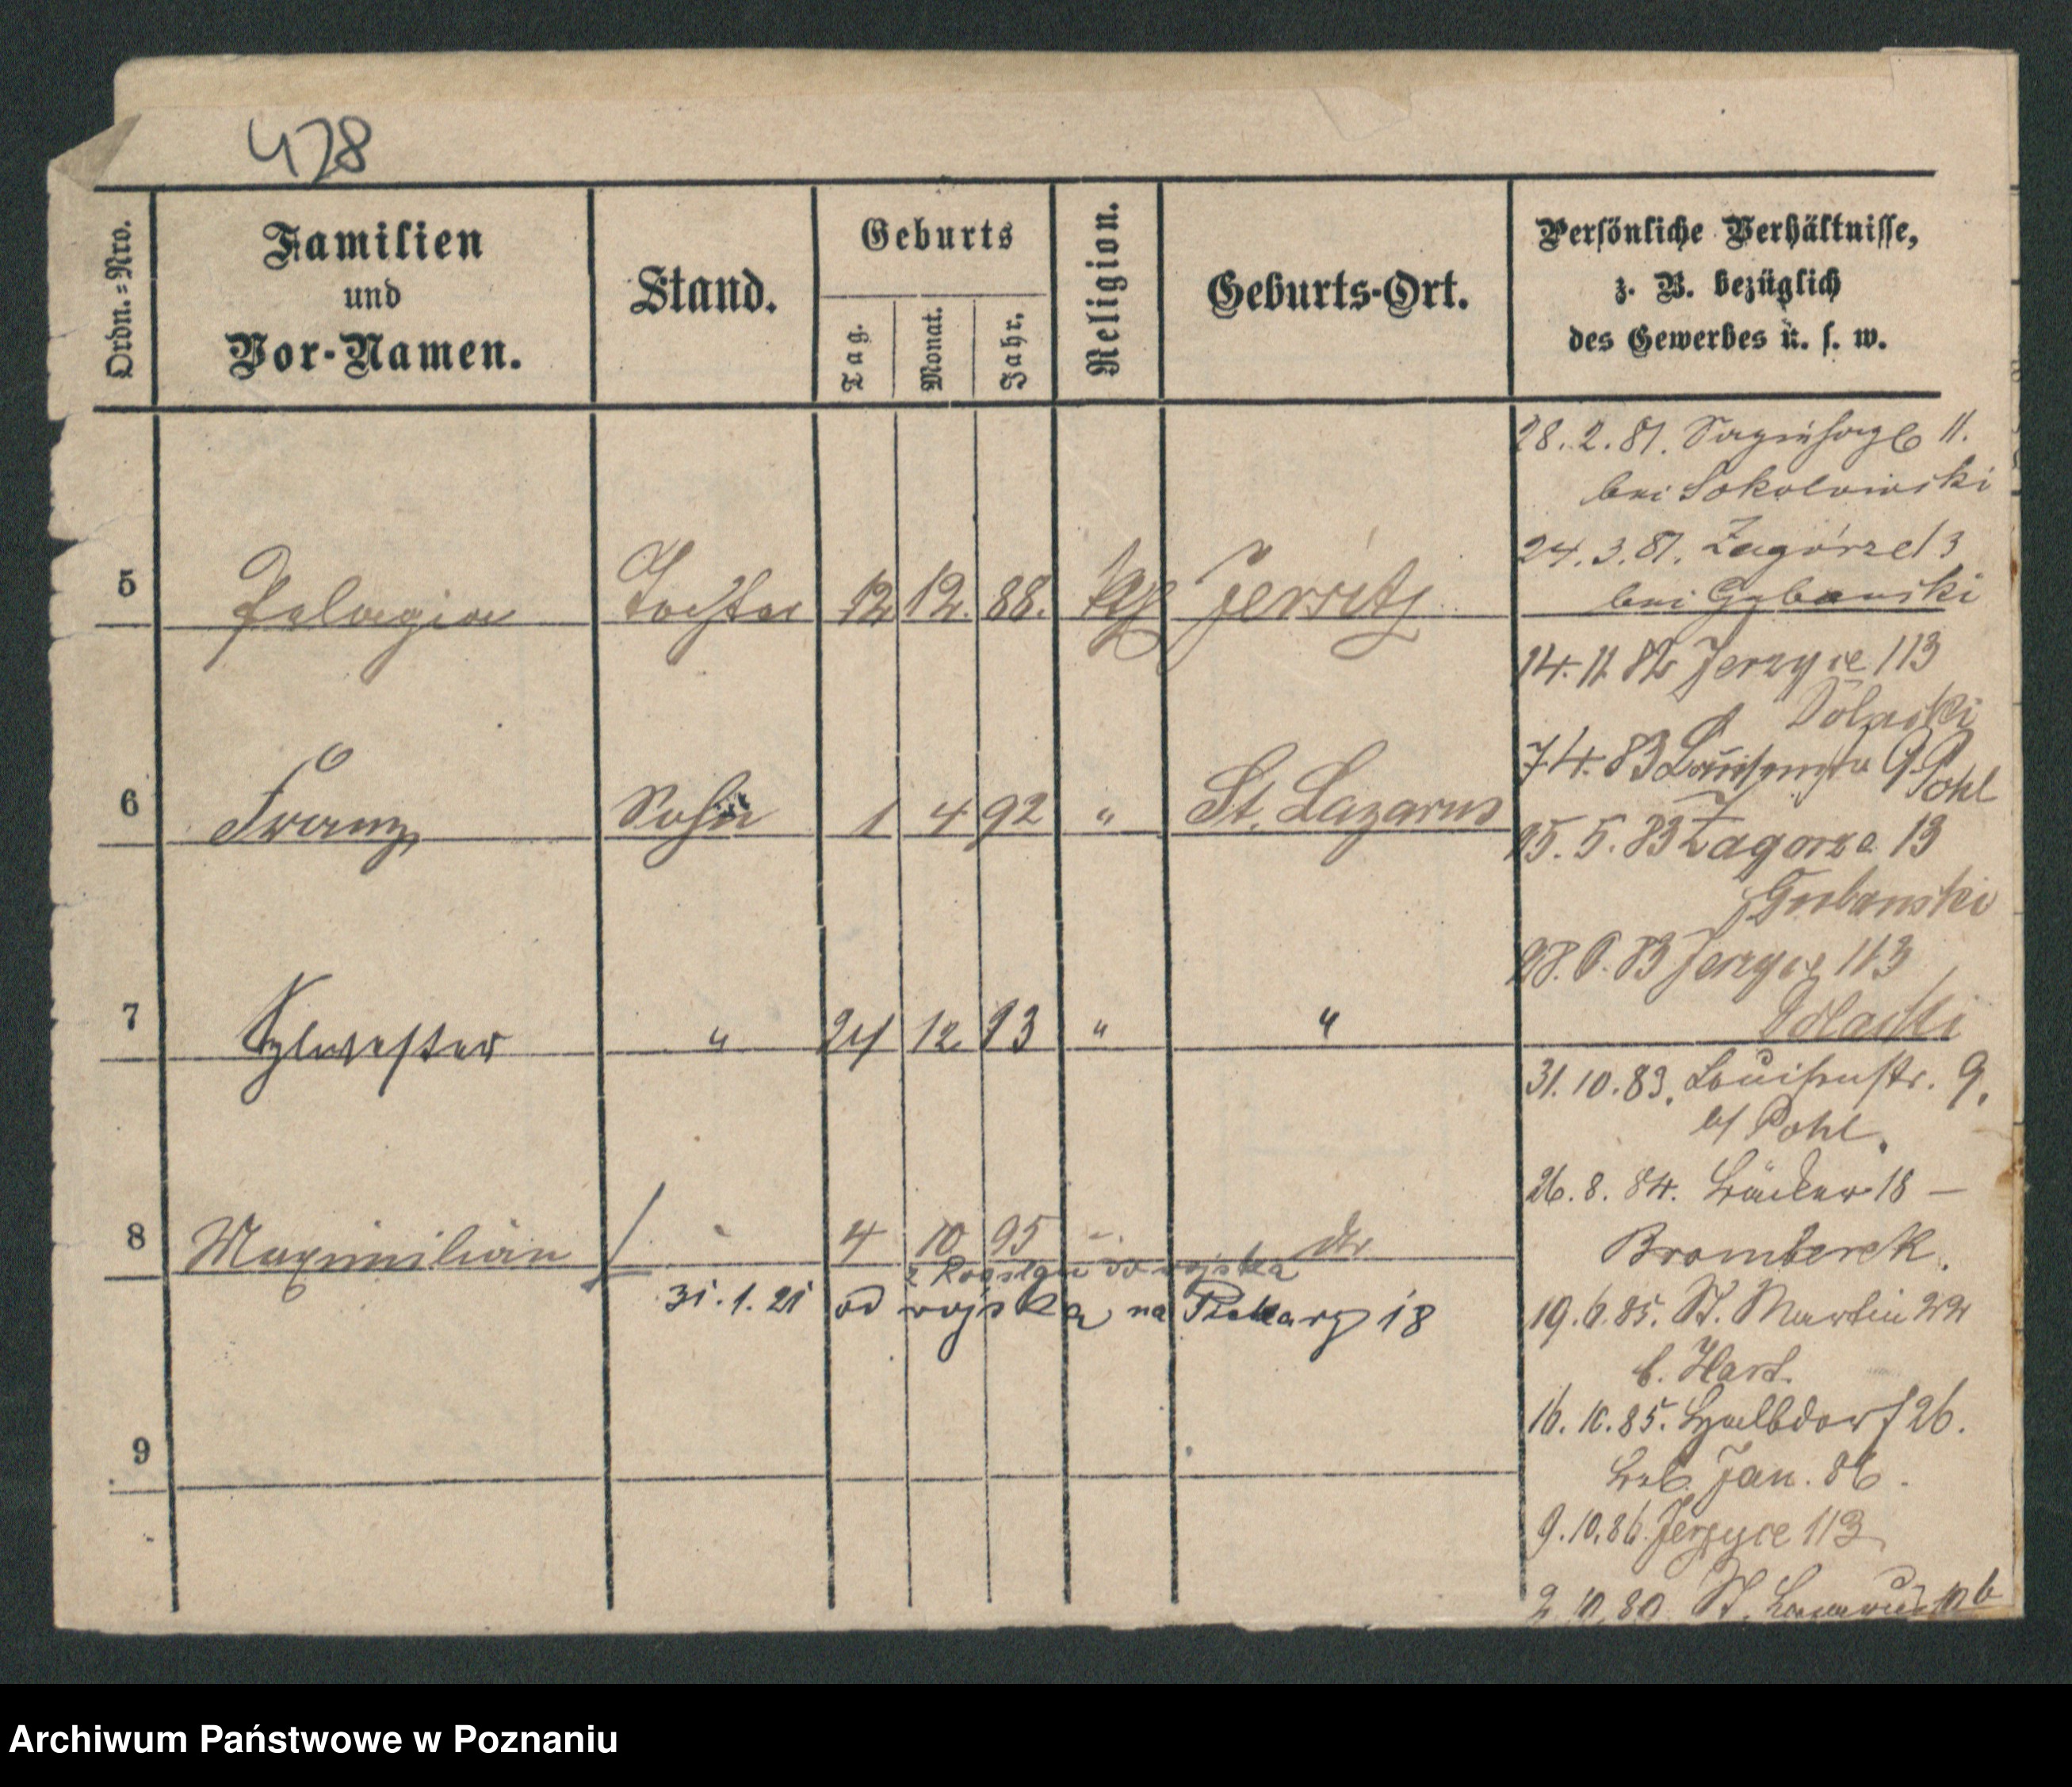 428
Ordn.=Nro.
Familien
und
Vor-Namen.
Stand.
Geburts
Tag.
Monat.
Jahr.
Religion.
Geburts-Ort.
Persönliche Verhältnisse,
z. B. bezüglich
des Gewerbes u. s. w.
5 Pelagia Tochter 12 12. 88. kath Jersitz
6 Franz Sohn 1 4 92 " St. Lazarus
7 Sylvester " 24 12 93 " "
8 Maximilian 4 10 95 do
31.1.21 od wojska na Piekary 18
9
28. 2. 81. 11.
bei Sokolowski
24. 3. 81. Zagórze 13
bei Gybanski
14. 11. 82 Jerzyce 113
7 4. 83 Louisenstr 9 Pohl
25. 5. 83 Zagorze 13
Gubanski
28. 6. 83 Jerzyce 113
31. 10. 83. Louisenstr. 9.
b/ Pohl.
26. 8. 84. Bäcker 18 –
Bromberek.
19. 6. 85. St. Martin 22
b. Hart.
16. 10. 85. Halbdorf 26.
Jan. 86.
9. 10. 86. Jerzyce 113
St. Lazarus 10 b
Archiwum Państwowe w Poznaniu